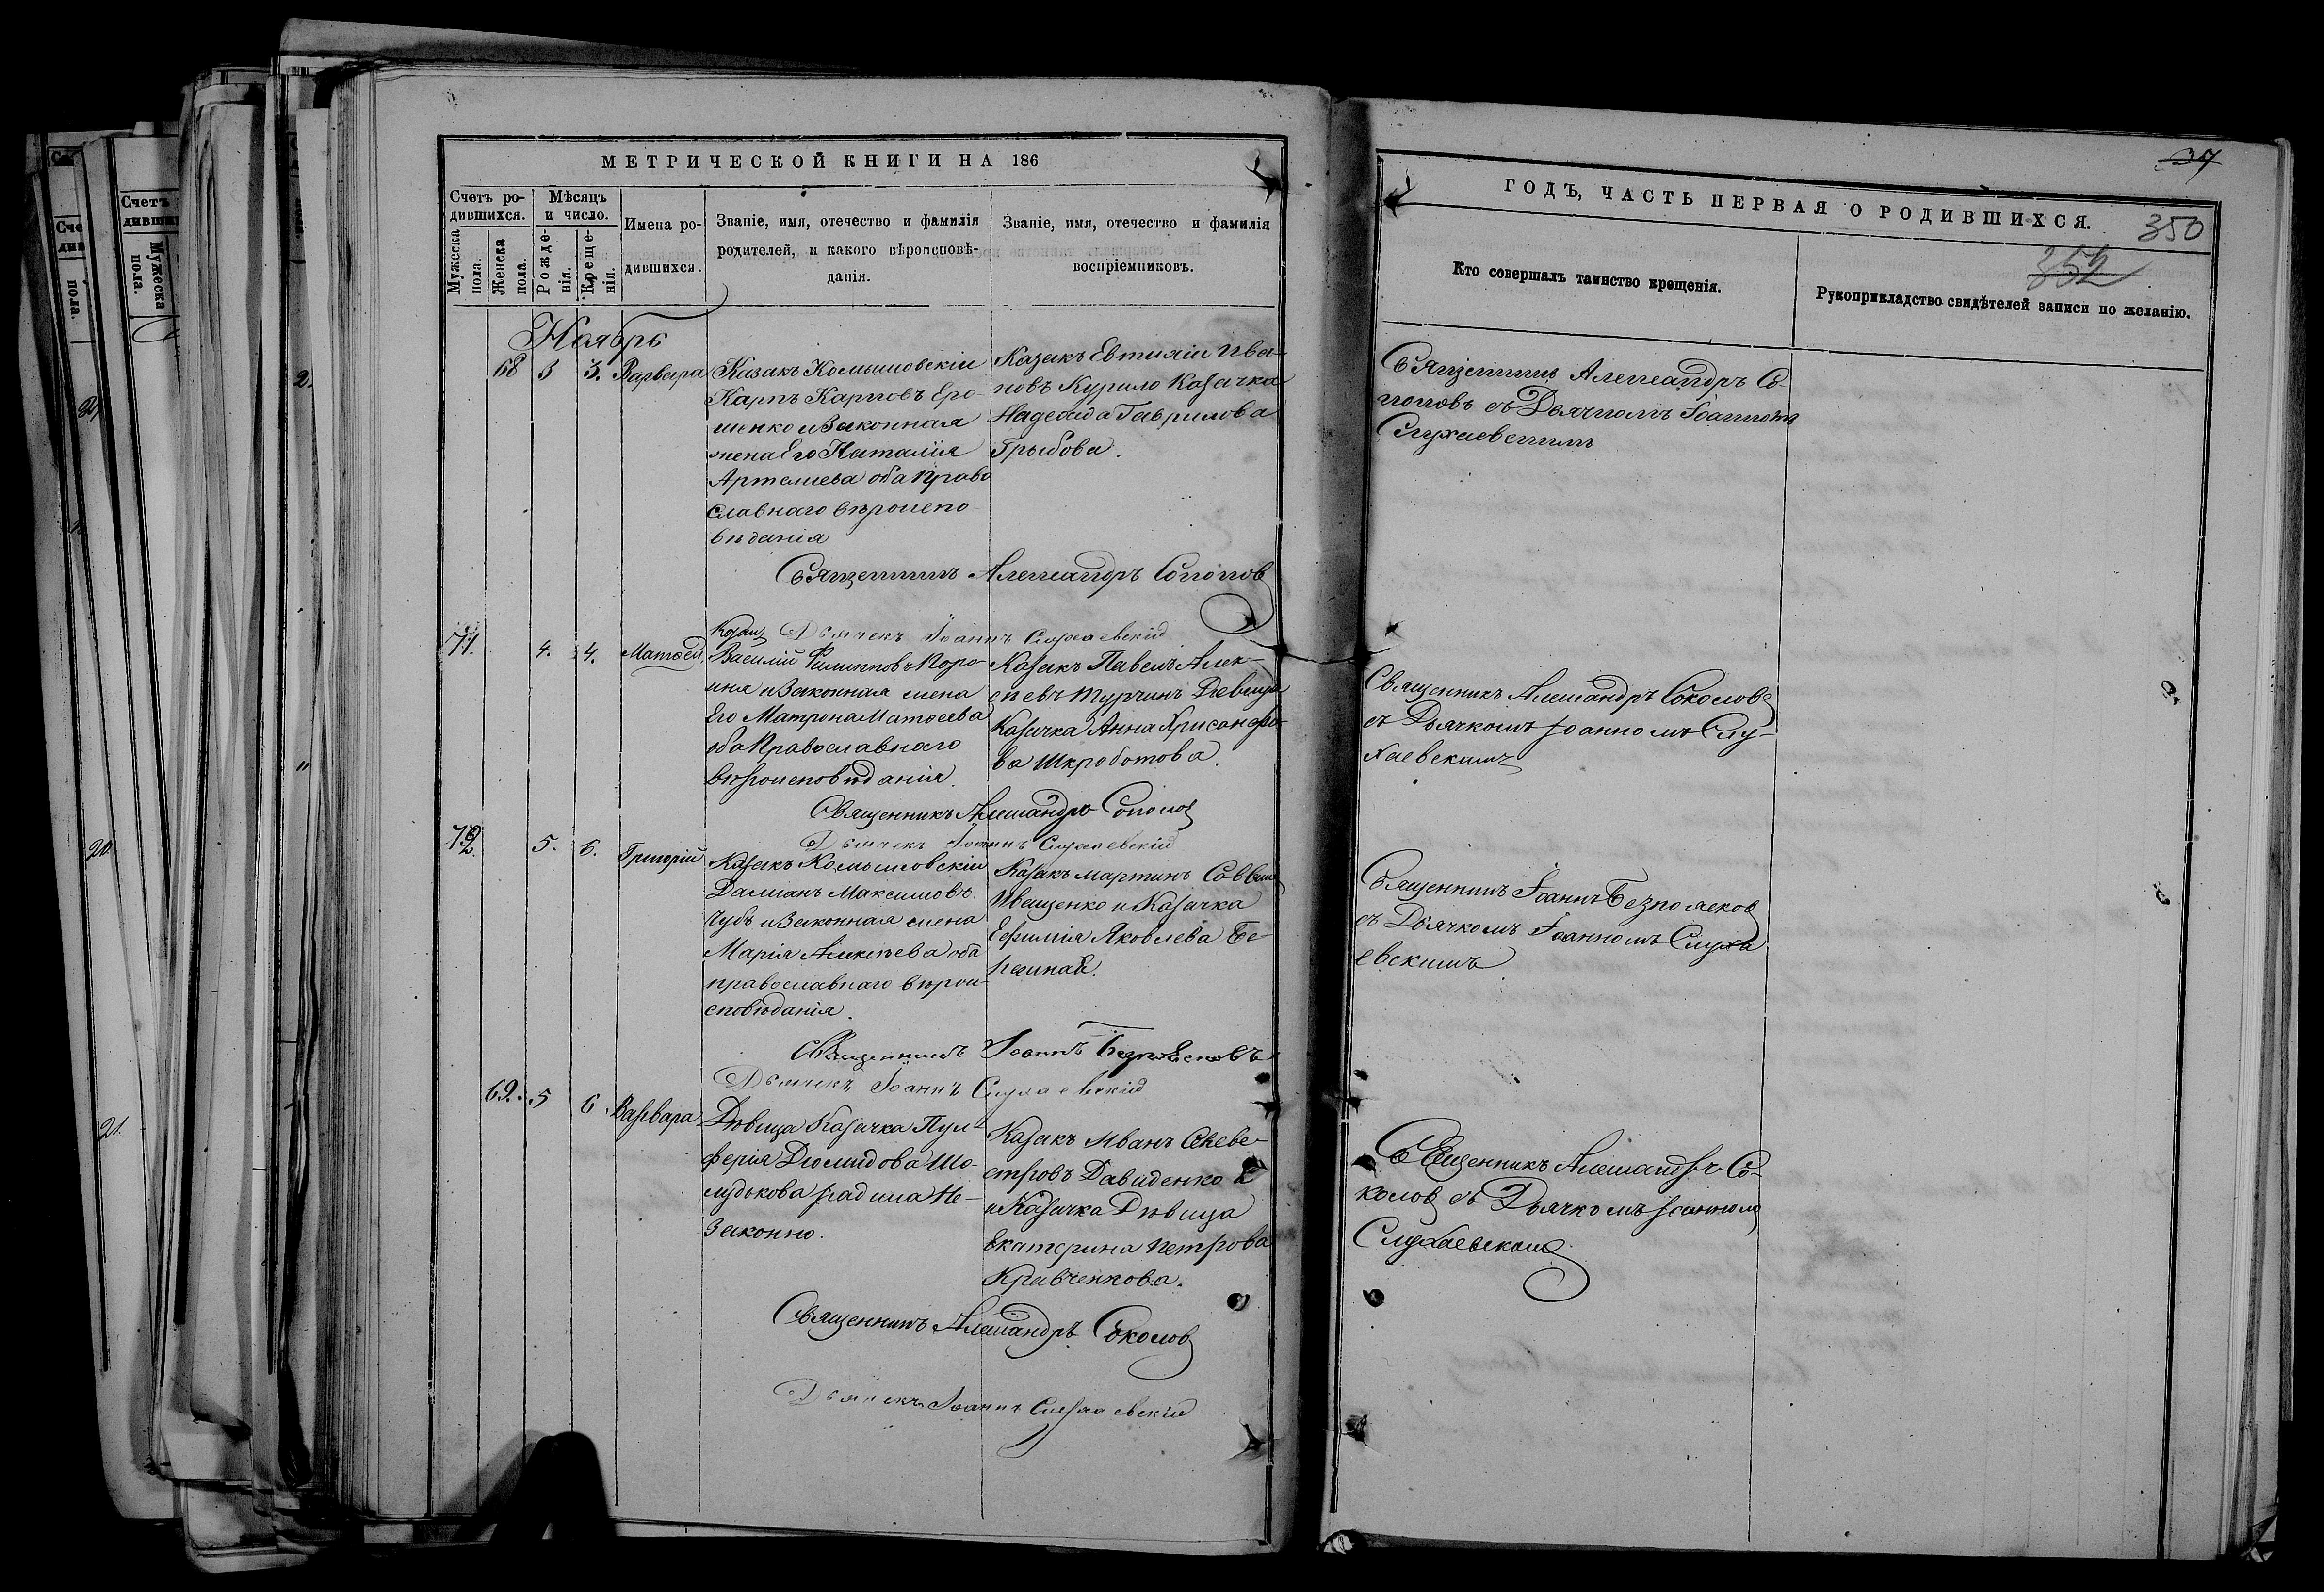 МЕТРИЧЕСКОЙ КНИГИ НА 186
Счетъ ро-
дившихся.
Мѣсяцъ
и число.
Имена ро-
дившихся.
Званіе, имя, отечество и фамилія
родителей, и какого вѣроисповѣ-
данія.
Званіе, имя, отечество и фамилія
воспріемниковъ.
Мужеска
пола.
Женска
пола.
Рожде-
нія.
Креще-
нія.
Ноябрь
68 3 3. Варвара
Казакъ Комышовскій
Карпъ Карповъ Еро-
шенко и Законная
жена Его Наталія
Артемиева оба Право
славнаго вѣроиспо
вѣданія
Казакъ Евтихій Ива-
новъ Курило Казачка
Надежда Гаврилова
Грыбова.
Священникъ Александръ Соколов
Дьячекъ Іоаннъ Слухаевскій
71. 4. 4. Матѳей
Козакъ
Василій Филипповъ Коро-
иня и Законная жена
Его Матрона Матѳеева
оба Православнаго
вѣроисповѣданія.
Казакъ Павелъ Алек-
сѣевъ Турчинъ Девица
Казачка Анна Хрисанфо-
ва Шкроботова.
Священникъ Александръ Соколов
Дьячекъ Іоаннъ Слухаевскій
72. 5. 6. Григорій
Казакъ Комышовскій
Даміанъ Максимовъ
Чубъ и Законная жена
Марія Алексѣева оба
православнаго вѣрои-
сповѣданія.
Казакъ Мартинъ Саввинъ
Иващенко и Казачка
Ефимія Яковлева Бе-

Священникъ Іоаннъ Безпоясковъ
Дьячекъ Іоаннъ Слухаевскій
69. 5 6. Варвара
Дѣвица Казачка Пул-
ферія Діомидова Шо-
лудькова
законно.
Казакъ Иванъ Селеве-
стровъ Давиденко
и Казачка Дѣвица
Екатерина Петрова
Кравченкова.
Священникъ Александръ Соколов
Дьячекъ Іоаннъ Слухаевскій
37
ГОДЪ, ЧАСТЬ ПЕРВАЯ О РОДИВШИХСЯ.
350
352
Кто совершалъ таинство крещенія.
Рукоприкладство свидѣтелей записи по желанію.
Священникъ Александръ Со-
коловъ съ Дьячкомъ Іоанномъ
Слухаевскимъ
Священникъ Александръ Соколовъ
съ Дьячкомъ Іоанномъ Слу-
хаевскимъ
Священникъ Іоаннъ Безпоясков
съ Дьячкомъ Іоанномъ Слуха
евскимъ
Священникъ Александръ Со-
колов съ Дьячкомъ Іоанномъ
Слухаевским